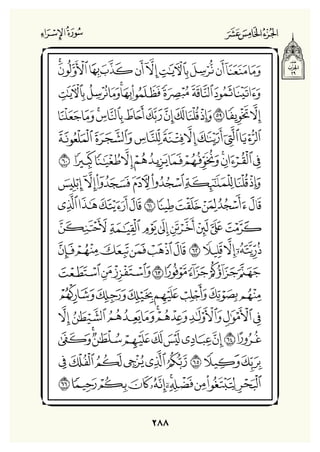 الجزء الخامس عشر
سورة الإسراء
الحزب
٢٩
وَمَا مَنَعَنَا أَن نُّرْسِلَ بِالْآيَاتِ إِلَّا أَن كَذَّبَ بِهَا الْأَوَّلُونَ ۚ
وَآتَيْنَا ثَمُودَ النَّاقَةَ مُبْصِرَةً فَظَلَمُوا بِهَا ۚ وَمَا نُرْسِلُ بِالْآيَاتِ
إِلَّا تَخْوِيفًا ٥٩ وَإِذْ قُلْنَا لَكَ إِنَّ رَبَّكَ أَحَاطَ بِالنَّاسِ ۚ وَمَا جَعَلْنَا
الرُّءْيَا الَّتِي أَرَيْنَاكَ إِلَّا فِتْنَةً لِّلنَّاسِ وَالشَّجَرَةَ الْمَلْعُونَةَ
فِي الْقُرْءَانِ ۚ وَنُخَوِّفُهُمْ فَمَا يَزِيدُهُمْ إِلَّا طُغْيَانًا كَبِيرًا ٦٠
وَإِذْ قُلْنَا لِلْمَلَائِكَةِ اسْجُدُوا لِآدَمَ فَسَجَدُوا إِلَّا إِبْلِيسَ
قَالَ ءَأَسْجُدُ لِمَنْ خَلَقْتَ طِينًا ٦١ قَالَ أَرَءَيْتَكَ هَٰذَا الَّذِي
كَرَّمْتَ عَلَيَّ لَئِنْ أَخَّرْتَنِ إِلَىٰ يَوْمِ الْقِيَامَةِ لَأَحْتَنِكَنَّ
ذُرِّيَّتَهُ إِلَّا قَلِيلًا ٦٢ قَالَ اذْهَبْ فَمَن تَبِعَكَ مِنْهُمْ فَإِنَّ
جَهَنَّمَ جَزَاؤُكُمْ جَزَاءً مَّوْفُورًا ٦٣ وَاسْتَفْزِزْ مَنِ اسْتَطَعْتَ
مِنْهُم بِصَوْتِكَ وَأَجْلِبْ عَلَيْهِم بِخَيْلِكَ وَرَجِلِكَ وَشَارِكْهُمْ
فِي الْأَمْوَالِ وَالْأَوْلَادِ وَعِدْهُمْ ۚ وَمَا يَعِدُهُمُ الشَّيْطَانُ إِلَّا
غُرُورًا ٦٤ إِنَّ عِبَادِي لَيْسَ لَكَ عَلَيْهِمْ سُلْطَانٌ ۚ وَكَفَىٰ
بِرَبِّكَ وَكِيلًا ٦٥ رَّبُّكُمُ الَّذِي يُزْجِي لَكُمُ الْفُلْكَ فِي
الْبَحْرِ لِتَبْتَغُوا مِن فَضْلِهِ ۚ إِنَّهُ كَانَ بِكُمْ رَحِيمًا ٦٦
٢٨٨